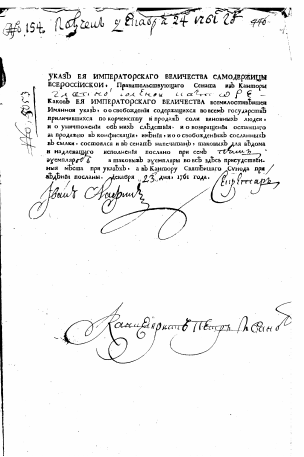 № 154 Получен декабр 24 1761 446
УКАЗЪ ЕЯ ИМПЕРАТОРСКАГО ВЕЛИЧЕСТВА САМОДЕРЖИЦЫ
ВСЕРОССІЙСКОЙ, Правительствующаго Сената изъ Канторы
Каковъ ЕЯ ИМПЕРАТОРСКАГО ВЕЛИЧЕСТВА всемилостивѣйшей
Имянной указъ, о свобожденіи содержащихся во всемъ государствѣ
приличившихся по корчемству и продажѣ соли виновныхъ людей,
и о уничтоженіи объ нихъ слѣдствія, и о возвращеніи оставшаго
за продажею въ конфискаціи имѣнія, и о освобожденіи сосланныхъ
въ силки, состоялся и въ сенатѣ напечатанъ, таковыхъ для вѣдома
и надлежащаго исполненія послано при семъ
экземпляровъ а таковыя экземпляры во всѣ здѣсь присудствен-
ныя мѣста при указахъ, а въ Кантору Святѣйшаго Сунода при
вѣденіи посланы. Декабря 23 дня, 1761 года. Секретарь
Иванъ
Канцеляристъ Петръ